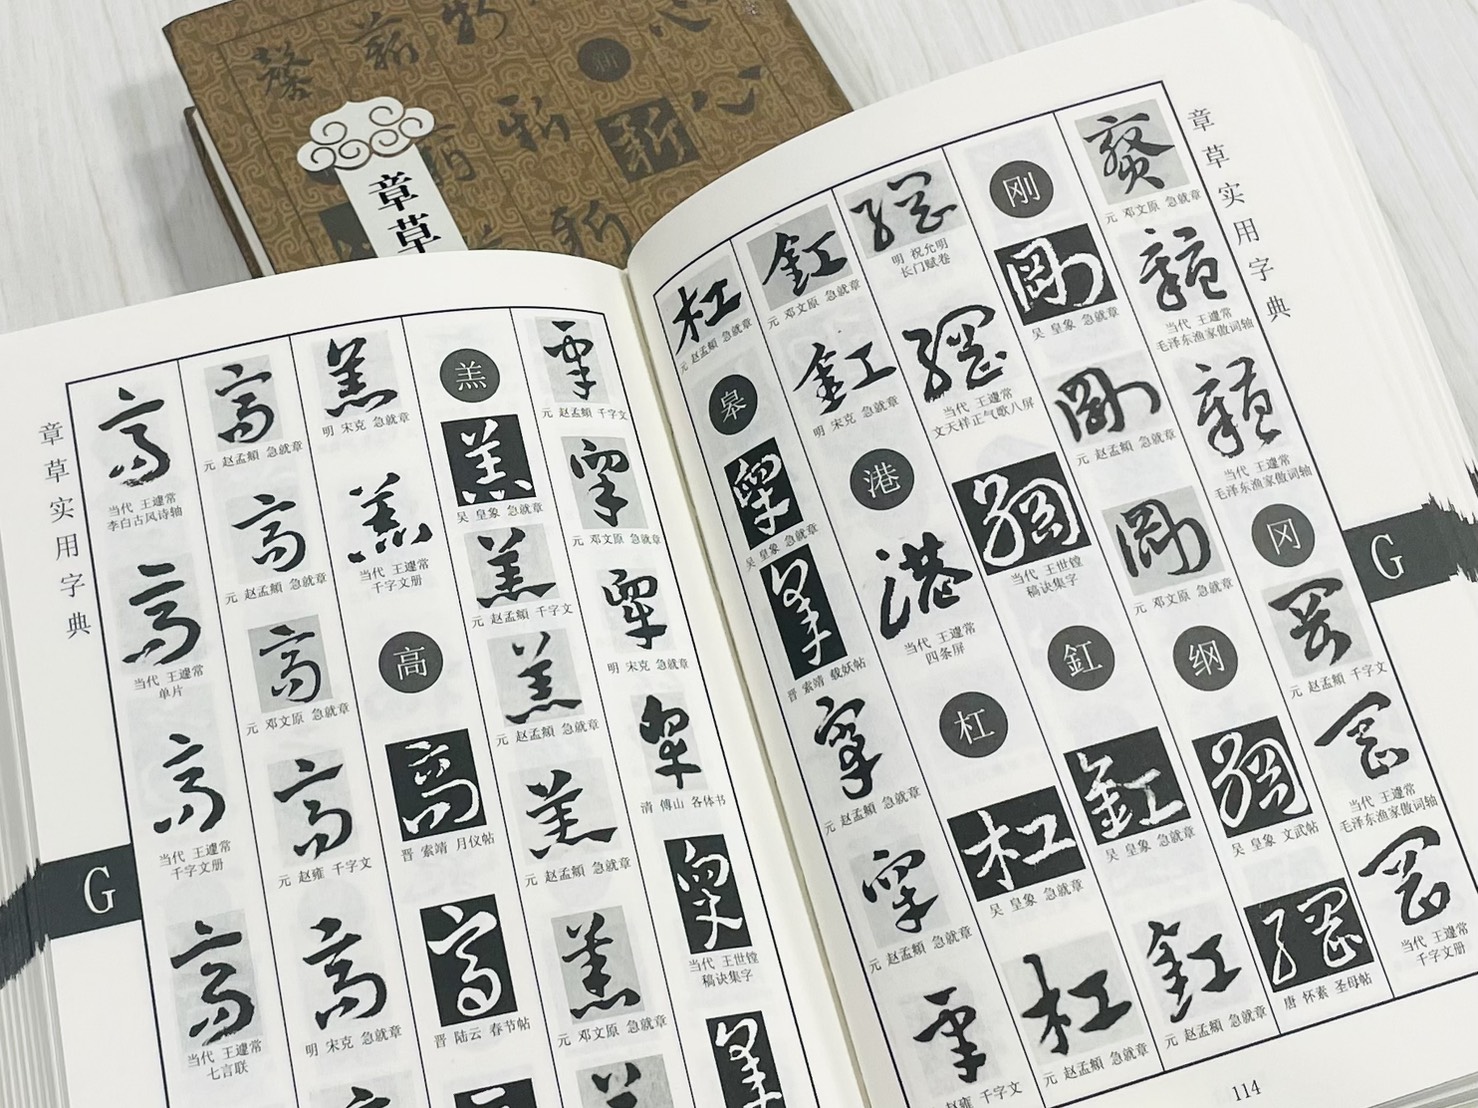 章草
章草实用字典
G
高
当代 王蘧常
李白古风诗轴
高
当代 王蘧常
单片
高
当代 王蘧常
千字文册
高
当代 王蘧常
七言联
高
元 赵孟頫 急就章
高
元 赵孟頫 急就章
高
元 邓文原 急就章
高
元 赵雍 千字文
高
明 宋克 急就章
羔
明 宋克 急就章
羔
当代 王蘧常
千字文册
高
高
晋 索靖 月仪帖
高
晋 陆云 春节帖
羔
羔
吴 皇象 急就章
羔
元 赵孟頫 千字文
羔
元 赵孟頫 急就章
羔
元 赵孟頫 急就章
羔
元 邓文原 急就章
元 赵孟頫 千字文
元 邓文原 急就章
明 宋克 急就章
清 傅山 各体书
当代 王世镗
稿诀集字
杠
元 赵孟頫 急就章
皋
吴 皇象 急就章
晋 索靖 载妖帖
元 赵孟頫 急就章
元 赵孟頫 急就章
赵雍 千字文
釭
元 邓文原 急就章
釭
明 宋克 急就章
港
港
当代 王蘧常
四条屏
杠
杠
吴 皇象 急就章
杠
元 赵孟頫 急就章
纲
明 祝允明
长门赋卷
纲
当代 王蘧常
文天祥正气歌八屏
当代 王世镗
稿诀集字
釭
釭
吴 皇象 急就章
釭
元 赵孟頫 急就章
刚
剛
吴 皇象 急就章
剛
元 赵孟頫 急就章
剛
元 邓文原 急就章
纲
吴 皇象 文武帖
唐 怀素 圣母帖
元 邓文原 急就章
当代 王蘧常
毛泽东渔家傲词轴
当代 王蘧常
毛泽东渔家傲词轴
冈
元 赵孟頫 千字文
当代 王蘧常
毛泽东渔家傲词轴
当代 王蘧常
千字文册
章草实用字典
G
114